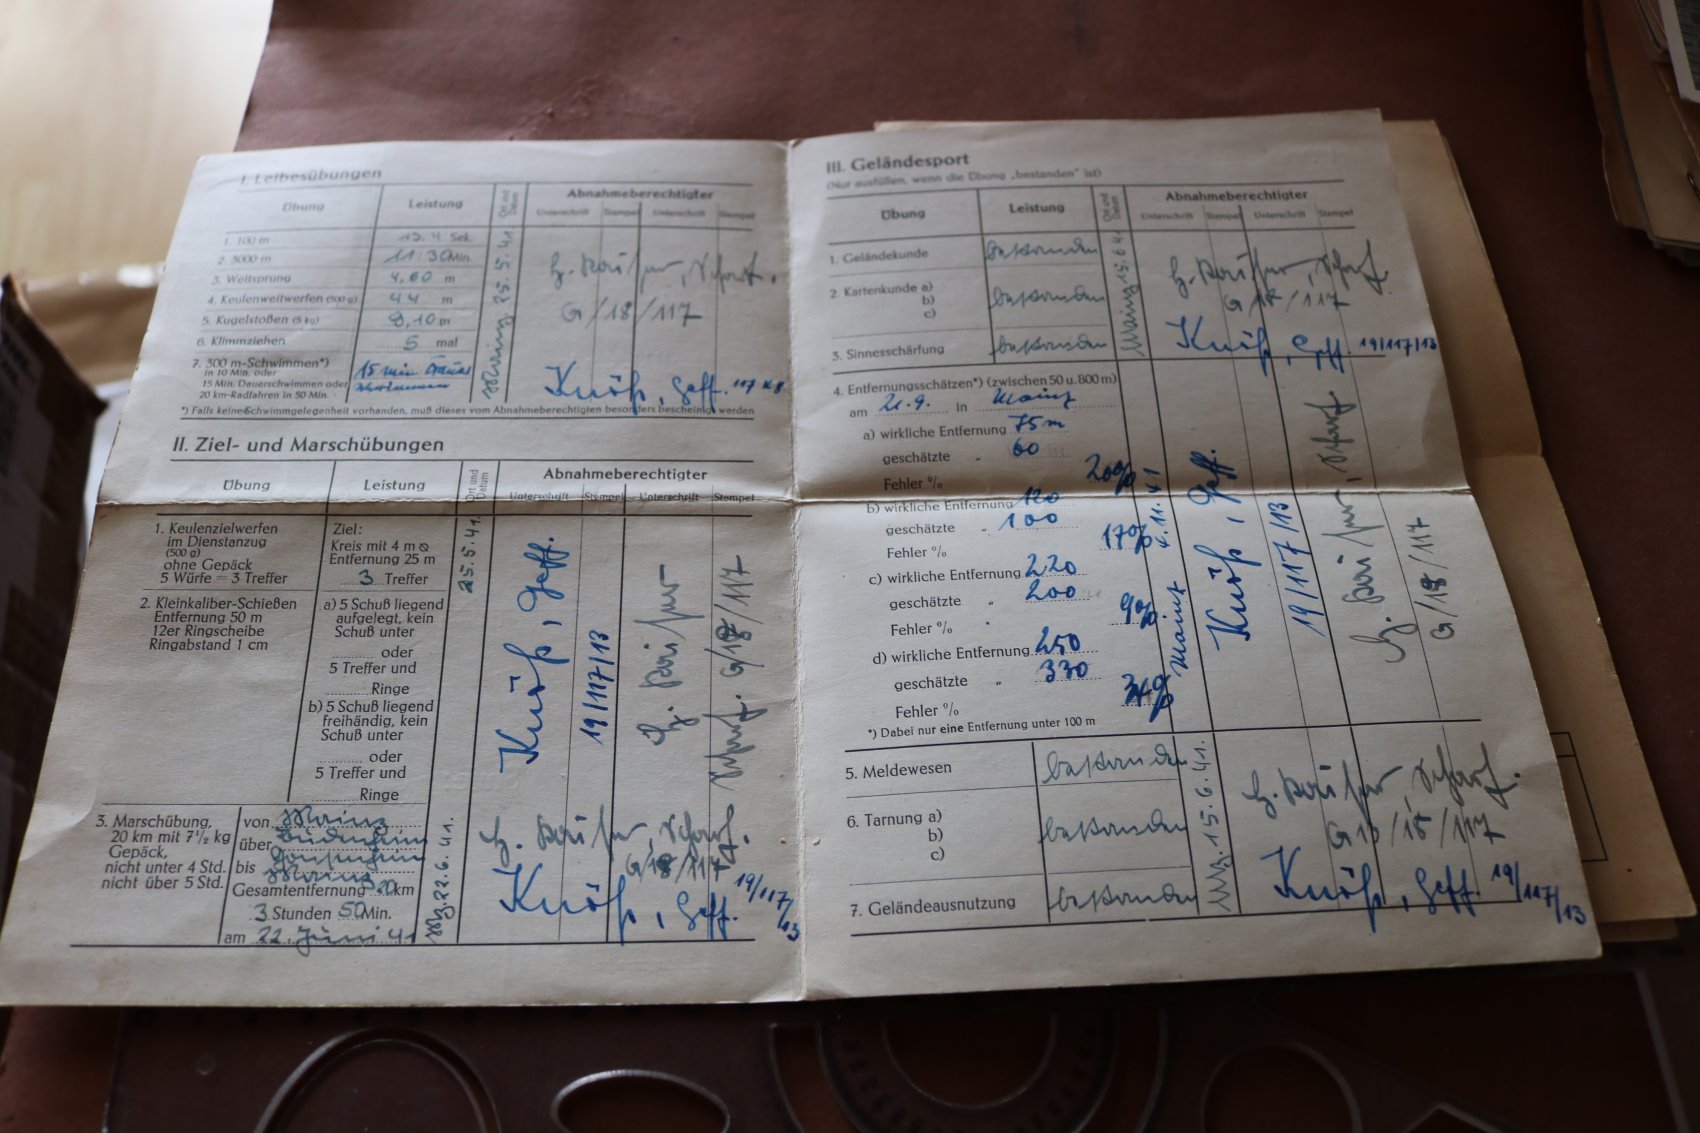 I. Leibesübungen
Übung Leistung Ort und Datum Abnahmeberechtigter
Unterschrift Stempel Unterschrift Stempel
1. 100 m 13.4 Sek.
2. 3000 m 11:30 Min.
3. Weitsprung 4,60 m
4. Keulenweitwerfen (500 g) 44 m
5. Kugelstoßen (5 kg) 8,10 m
6. Klimmziehen 5 mal
7. 300 m-Schwimmen*)
in 10 Min. oder
15 Min. Dauerschwimmen oder
20 km-Radfahren in 50 Min.
15 min Dauer
schwimmen
Mainz 25.5.41.
G/18/117
Knöß, Geff. 117
*) Falls keine Schwimmgelegenheit vorhanden, muß dieses vom Abnahmeberechtigten besonders bescheinigt werden
II. Ziel- und Marschübungen
Übung Leistung Ort und Datum Abnahmeberechtigter
Unterschrift Stempel Unterschrift Stempel
1. Keulenzielwerfen
im Dienstanzug
(500 g)
ohne Gepäck
5 Würfe = 3 Treffer
Ziel:
Kreis mit 4 m ⌀
Entfernung 25 m
3 Treffer
25.5.41.
2. Kleinkaliber-Schießen
Entfernung 50 m
12er Ringscheibe
Ringabstand 1 cm
a) 5 Schuß liegend
aufgelegt, kein
Schuß unter
oder
5 Treffer und
Ringe
b) 5 Schuß liegend
freihändig, kein
Schuß unter
oder
5 Treffer und
Ringe
Knöß, Geff.
19/117/13
G/18/117
3. Marschübung,
20 km mit 7½ kg
Gepäck,
nicht unter 4 Std.
nicht über 5 Std.
von Mainz
über Budenheim
Gonsenheim
bis Mainz
Gesamtentfernung 20 km
3 Stunden 50 Min.
am 22. Juni 41
Mz. 22.6.41.
G/18/117
Knöß, Geff. 19/117/13
III. Geländesport
(Nur ausfüllen, wenn die Übung „bestanden" ist)
Übung Leistung Ort und Datum Abnahmeberechtigter
Unterschrift Stempel Unterschrift Stempel
1. Geländekunde bestanden
2. Kartenkunde a)
b) bestanden
c)
3. Sinnesschärfung bestanden
Mainz 15.6.41
G/18/117
Knöß, Geff. 19/117/13
4. Entfernungsschätzen*) (zwischen 50 u. 800 m)
am 21.9. in Mainz
a) wirkliche Entfernung 75 m
geschätzte " 60
Fehler % 20%
b) wirkliche Entfernung 120
geschätzte " 100
Fehler % 17%
c) wirkliche Entfernung 220
geschätzte " 200
Fehler % 9%
d) wirkliche Entfernung 250
geschätzte " 330
Fehler % 34%
*) Dabei nur eine Entfernung unter 100 m
Mainz 4.11.41
Knöß, Geff.
19/117/13
G/18/117
5. Meldewesen bestanden
6. Tarnung a)
b) bestanden
c)
7. Geländeausnutzung bestanden
Mz. 15.6.41.
Knöß, Geff. 19/117/13